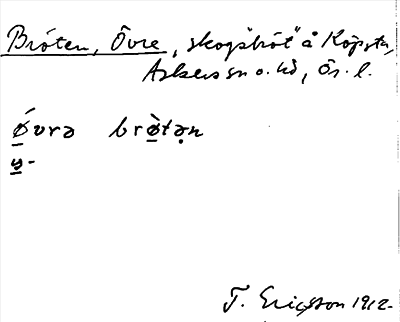 Bröten, Övre, "skogsbröt" å Köpsta,
Askers sn o. hd, Ör. l.
ǿvrə brötən
y-
T. Ericsson 1912